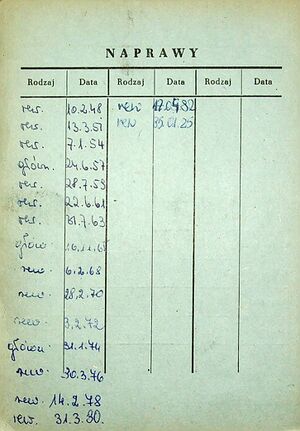 NAPRAWY
Rodzaj Data Rodzaj Data Rodzaj Data
rew. 10.2.48 rew
rew. 13.3.51 rew
rew. 7.1.54
główn. 24.6.57
rew. 28.7.59
rew. 22.6.61
rew. 31.7.63
główn
rew 6.2.68
rew. 28.2.70
rew 3.2.72
główn 31.1.74
rew. 30.3.76
rew. 14.2.78
rew. 31.3.80.